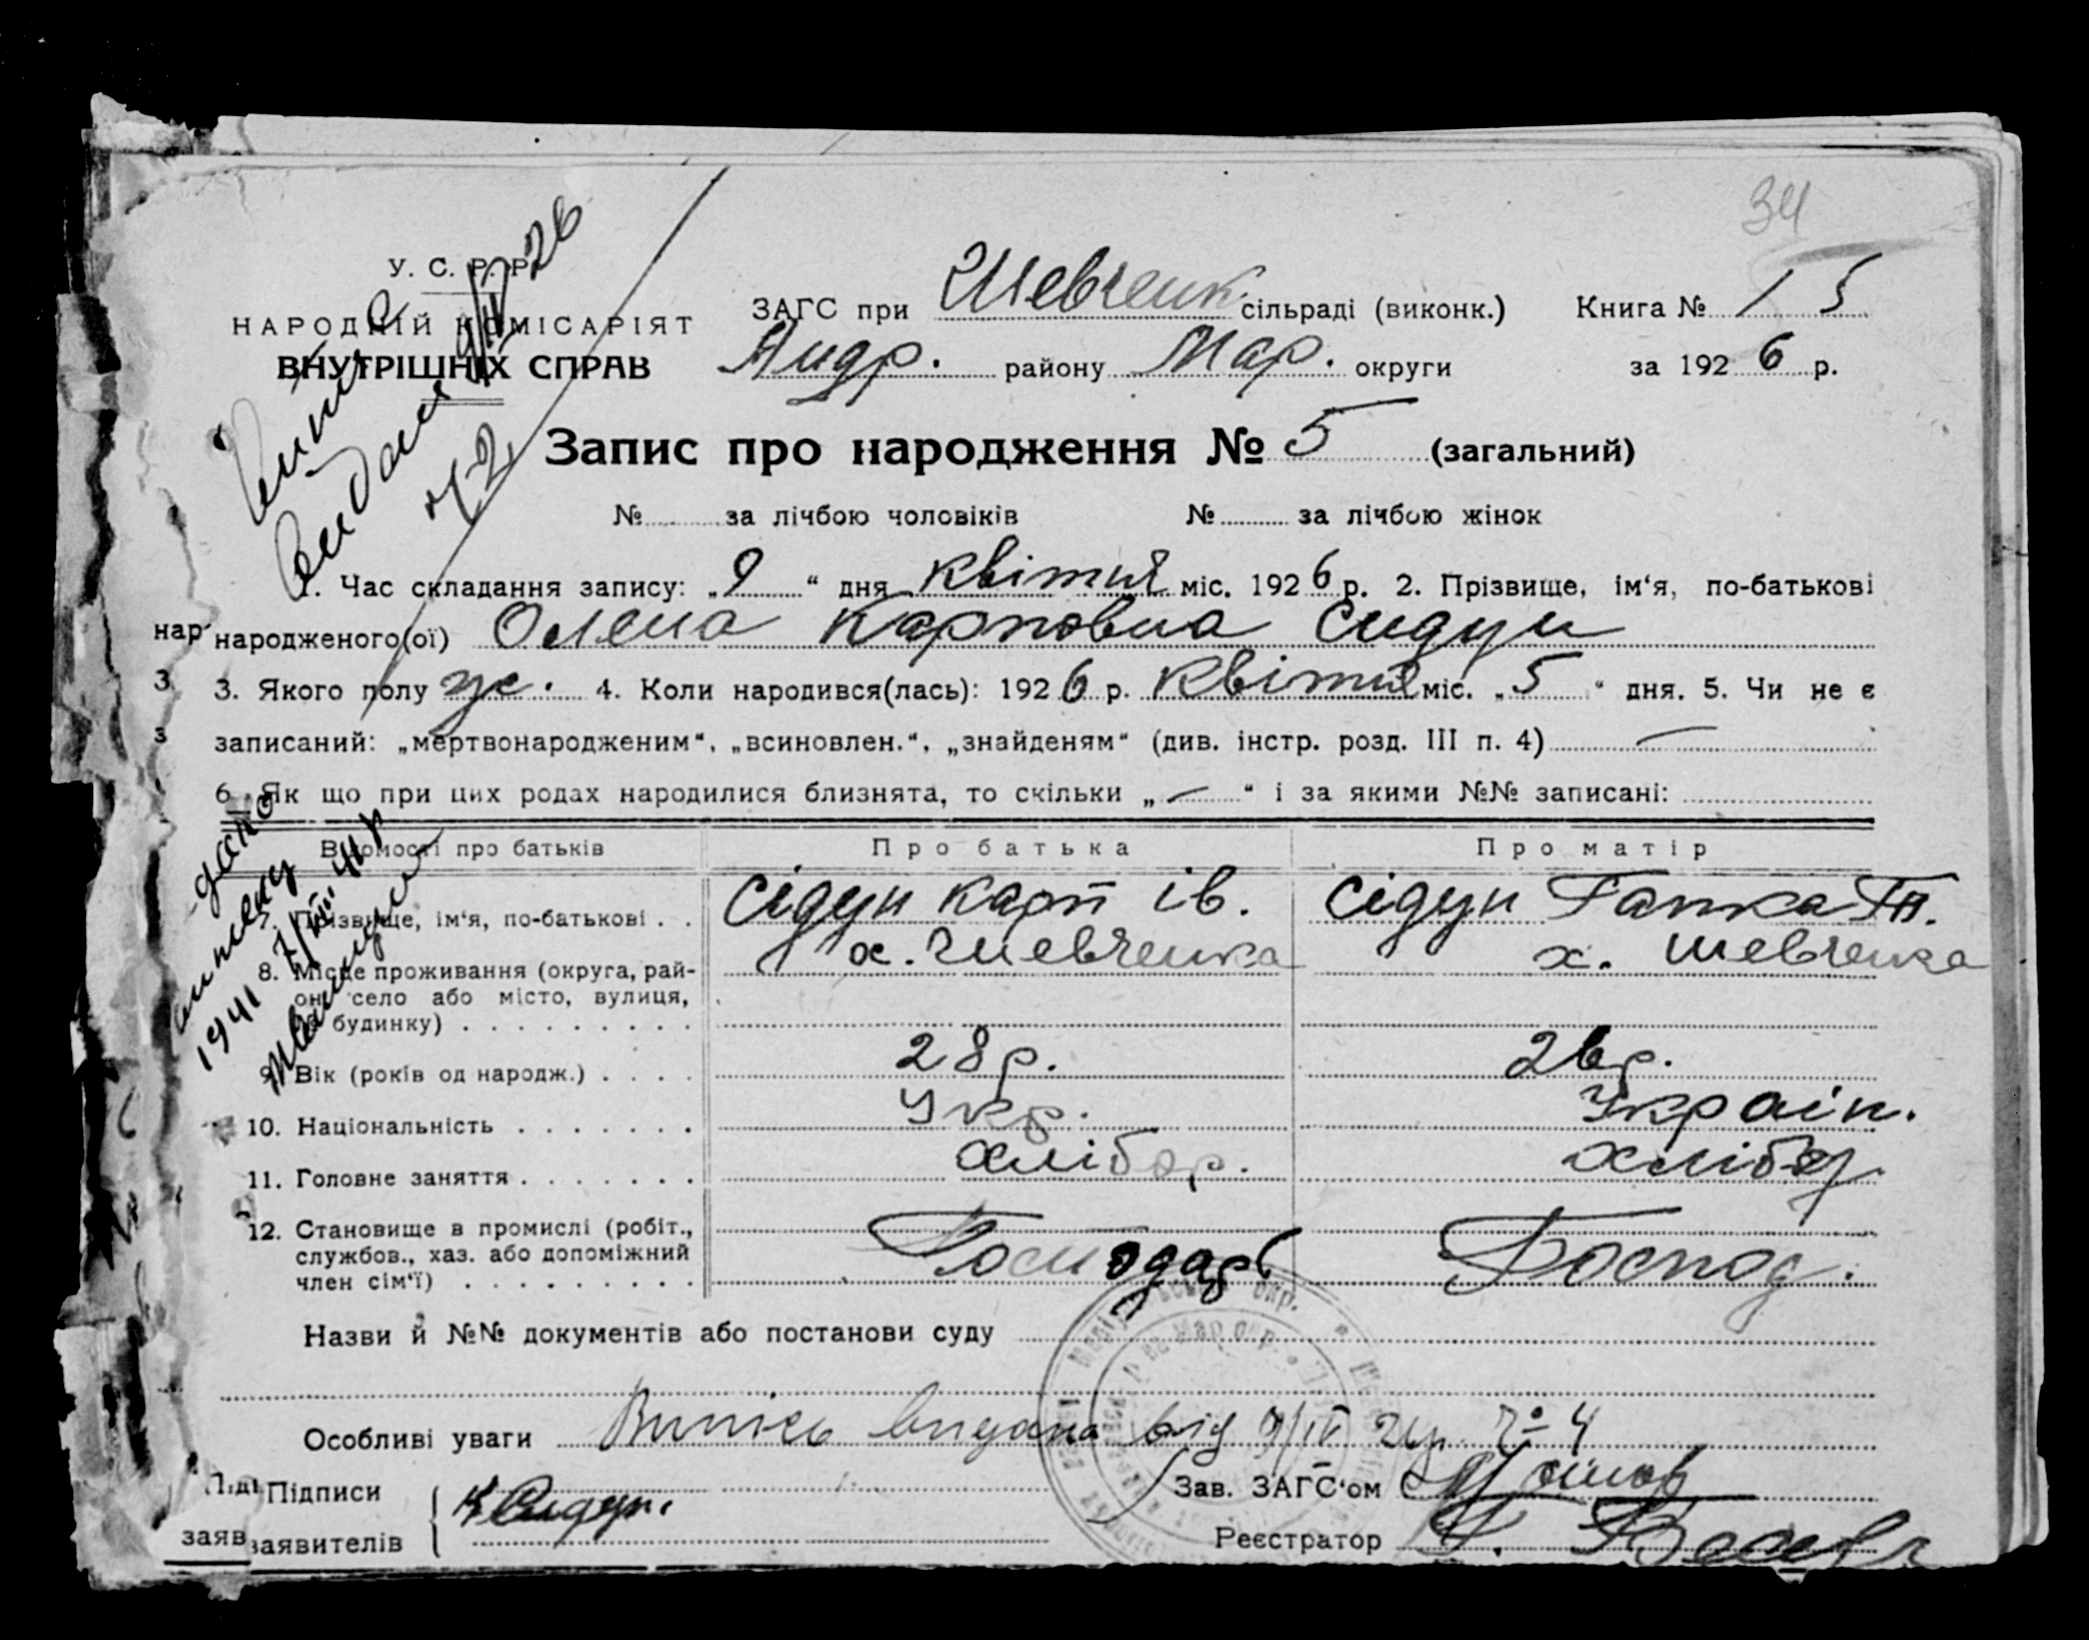 34
У. С. Р. Р.
НАРОДНІЙ КОМІСАРІЯТ
ВНУТРІШНІХ СПРАВ
ЗАГС при Шевченк. сільраді (виконк.) Книга № 1 5
Андр. району Мар. округи за 1926 р.
видана 9/IV 26
Запис про народження № 5 (загальний)
№ за лічбою чоловіків № за лічбою жінок
1. Час складання запису: „9“ дня квітня міс. 1926 р. 2. Прізвище, ім‘я, по-батькові
нар народженого(ої) Олена Карповна Сидун
3 3. Якого полу ж. 4. Коли народився(лась): 1926 р. квітня міс. „5“ дня. 5. Чи не є
з записаний: „мертвонародженим“, „всиновлен.“, „знайденям“ (див. інстр. розд. III п. 4) —
6. Як що при цих родах народилися близнята, то скільки „—“ і за якими №№ записані:
Відомості про батьків Про батька Про матір
7. Прізвище, ім‘я, по-батькові . . Сідун Карп Ів. Сідун Гапка Гн.
8. Місце проживання (округа, рай- х. Шевченка х. Шевченка
он, село або місто, вулиця,
№ будинку) . . . . . . . . .
9. Вік (років од народж.) . . . . 28 р. 26 р.
10. Національність . . . . . . . Укр. Україн.
11. Головне заняття . . . . . . . хлібор. хлібор.
12. Становище в промислі (робіт.,
службов., хаз. або допоміжний Господарь Господ.
член сім‘ї) . . . . . . . . .
дано
виписку
1941 7/VII 41 р
Назви й №№ документів або постанови суду
Особливі уваги Випись видана від 9/IV 26 р. № 4
Піді Підписи Зав. ЗАГС‘ом
заяв заявителів К Сидун. Реєстратор